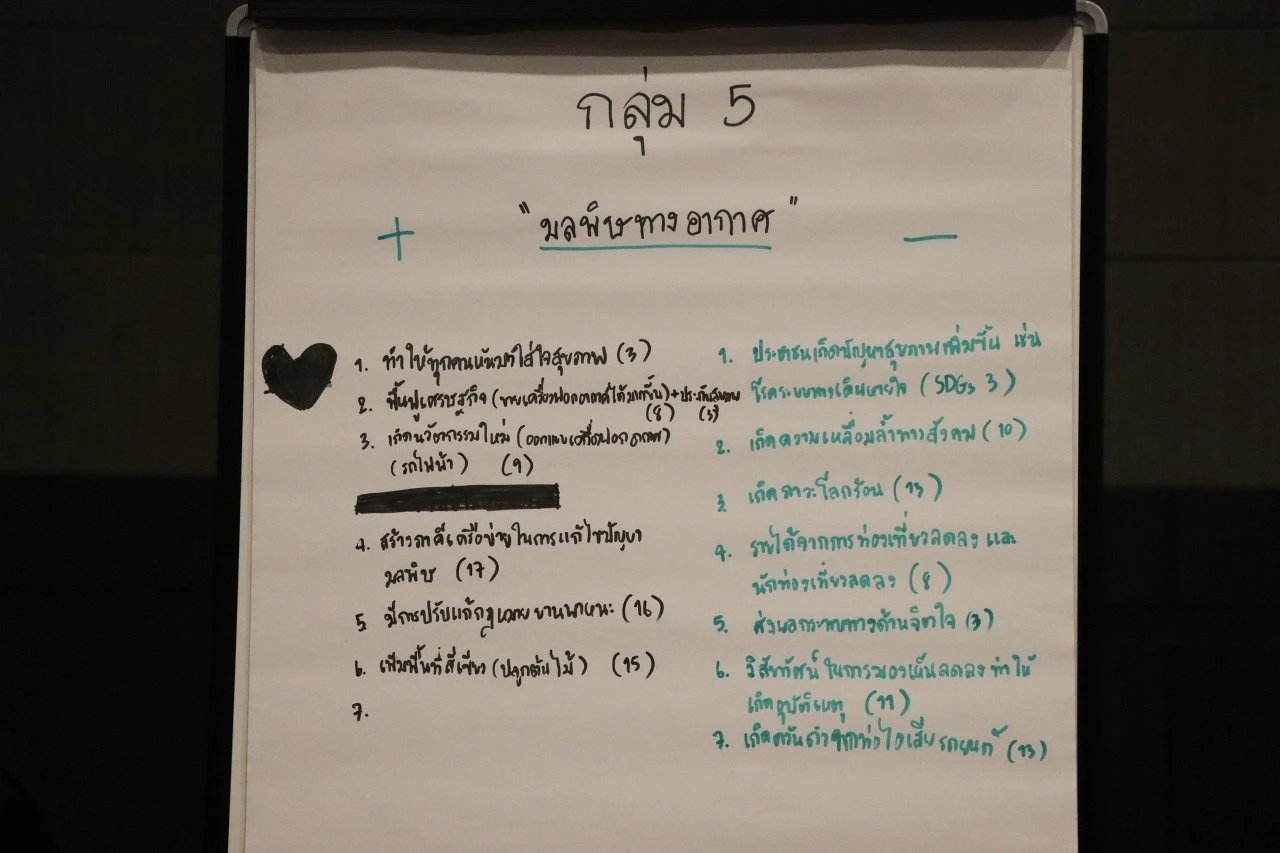 กลุ่ม 5
"มลพิษทางอากาศ"
+
-
1. ทำให้ทุกคนหันมาใส่ใจสุขภาพ (3)
2. ฟื้นฟูเศรษฐกิจ (ขายเครื่องฟอกอากาศได้มากขึ้น) + ประกันสุขภาพ
(8) (3)
3. เกิดนวัตกรรมใหม่ (ออกแบบเครื่องฟอกอากาศ)
(รถไฟฟ้า) (9)
4. สร้างภาคีเครือข่ายในการแก้ไขปัญหา
มลพิษ (17)
5. มีการปรับแก้กฎหมายยานพาหนะ (16)
6. เพิ่มพื้นที่สีเขียว (ปลูกต้นไม้) (15)
7.
1. ประชาชนเกิดปัญหาสุขภาพเพิ่มขึ้น เช่น
โรคระบบทางเดินหายใจ (SDGs 3)
2. เกิดความเหลื่อมล้ำทางสังคม (10)
3. เกิดภาวะโลกร้อน (13)
4. รายได้จากการท่องเที่ยวลดลง และ
นักท่องเที่ยวลดลง (8)
5. ส่งผลกระทบทางด้านจิตใจ (3)
6. วิสัยทัศน์ในการมองเห็นลดลงทำให้
เกิดอุบัติเหตุ (11)
7. เกิดควันดำจากท่อไอเสียรถยนต์ (13)